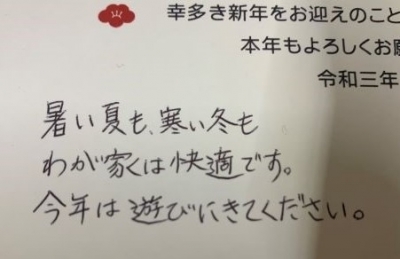 幸多き新年をお迎えのこと
本年もよろしくお
令和三年
暑い夏も、寒い冬も
わが家くは快適です。
今年は遊びにきてください。